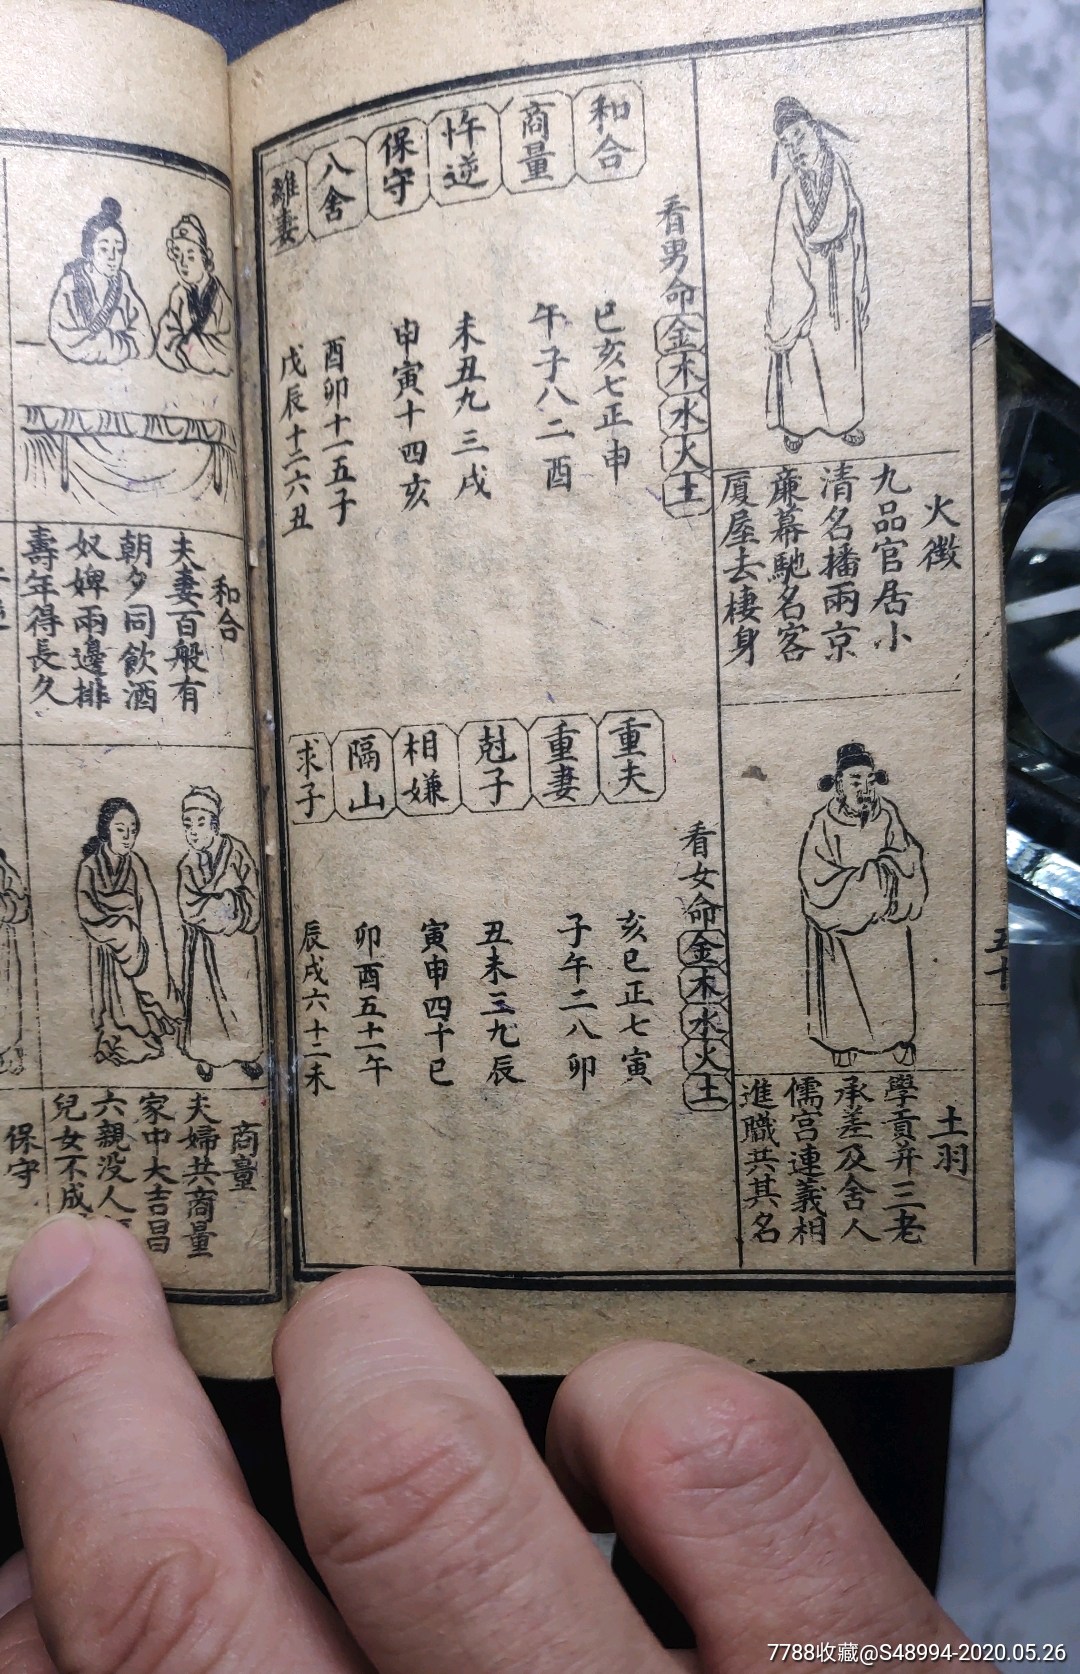 火徵
九品官居小
清名播兩京
廉幕馳名客
廈屋去棲身
土羽
學貢并三老
承差及舍人
儒宫連義相
進職共其名
五十
看男命金木水火土
和合
商量
忤逆
保守
八舍
離妻
巳亥七正申
午子八二酉
未丑九三戌
申寅十四亥
酉卯十一五子
戊辰十二六丑
看女命金木水火土
重夫
重妻
尅子
相嫌
隔山
求子
亥巳正七寅
子午二八卯
丑未三九辰
寅申四十巳
卯酉五十一午
辰戌六十二未
和合
夫妻百般有
朝夕同飲酒
奴婢兩邊排
壽年得長久
商量
夫婦共商量
家中大吉昌
六親没人
兒女不成
保守
7788收藏@S48994-2020.05.26